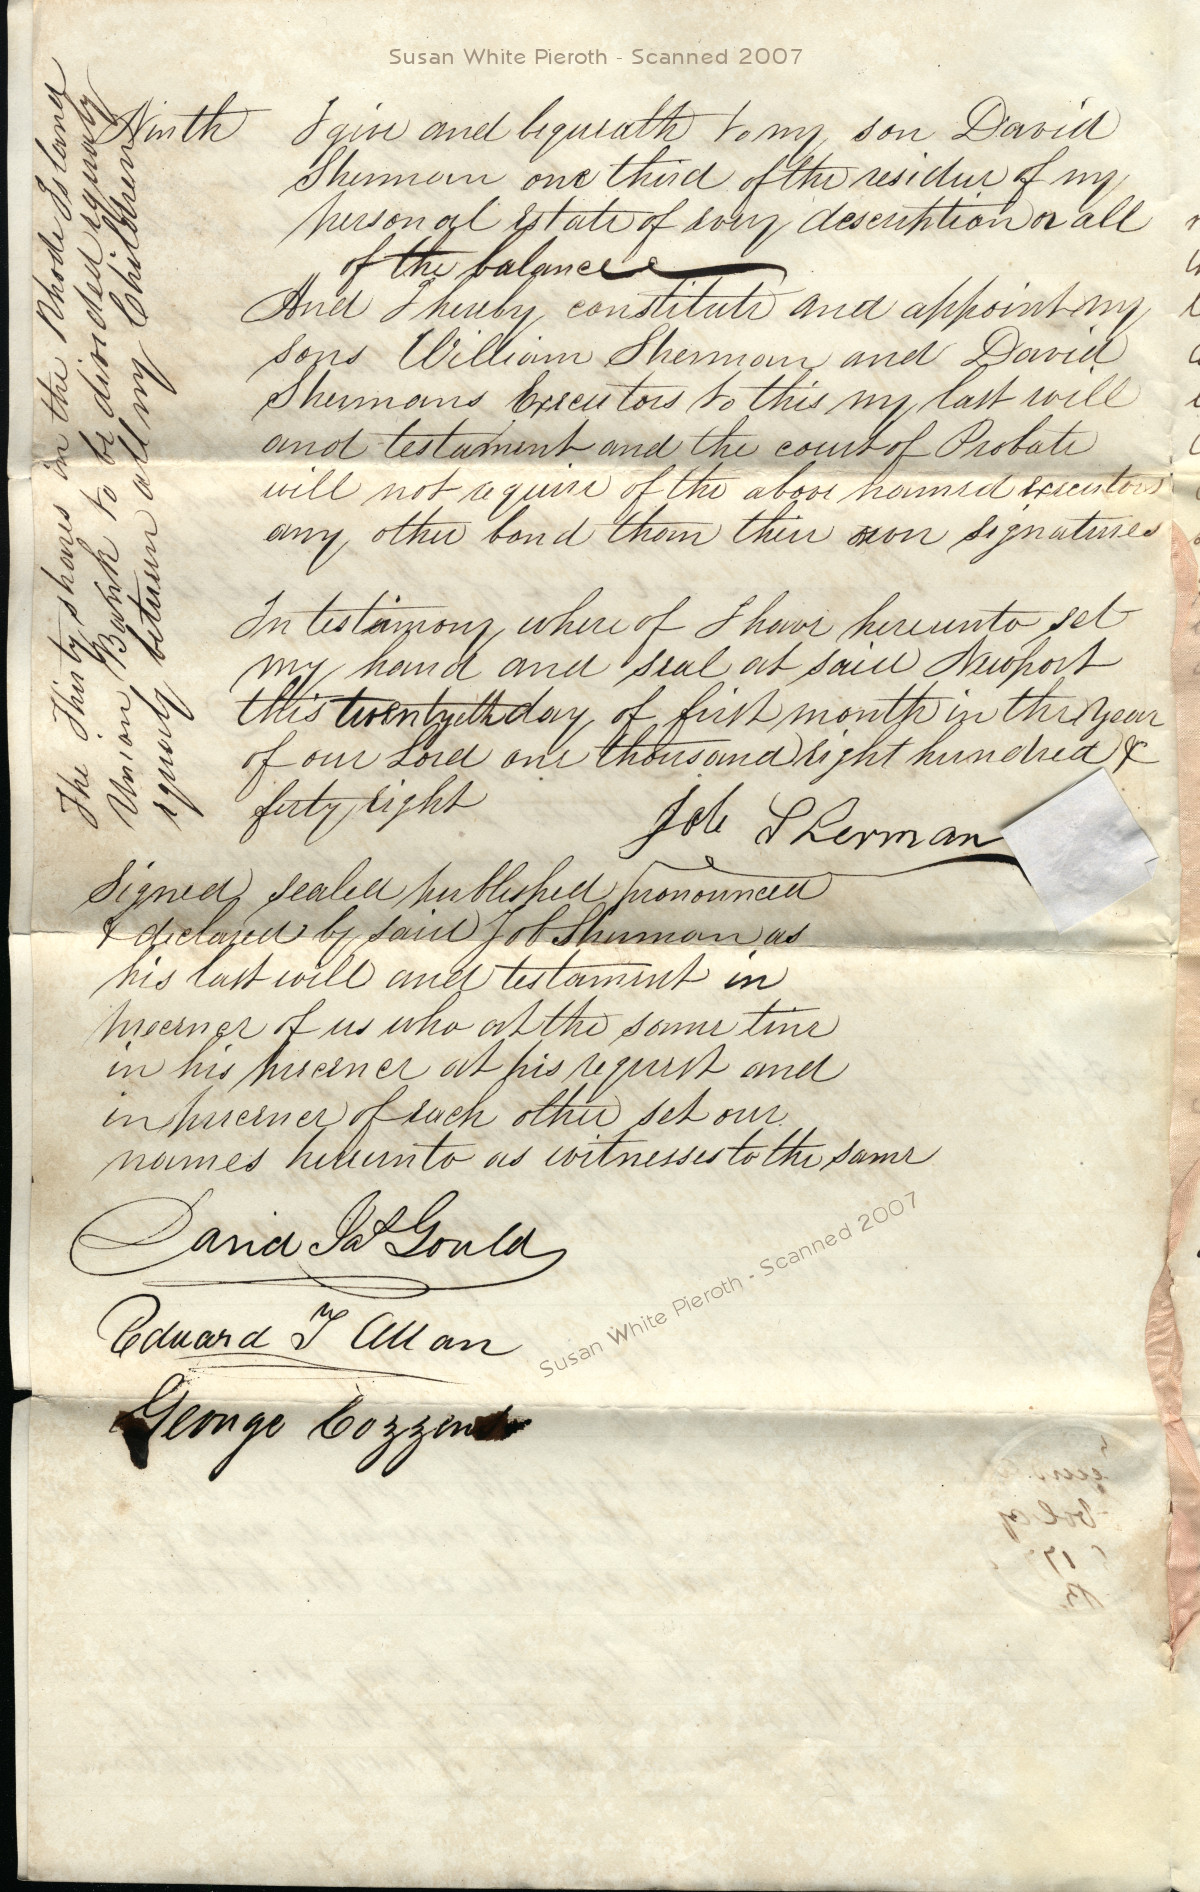 Susan White Pieroth - Scanned 2007
Ninth I give and bequeath to my son David
Sherman one third of the residue of my
personal estate of every description or all
of the balance
And I hereby constitute and appoint my
sons William Sherman and David
Shermans Executors to this my last will
and testament and the court of Probate
will not require of the above named executors
any other bond than their own signatures
In testimony where of I have hereunto set
my hand and seal at said Newport
this twentyeth day of first month in the year
of our Lord one thousand eight hundred &
forty eight
Job Sherman
Signed, sealed published pronounced
& declared by said Job Sherman as
his last will and testament in
presence of us who at the same time
in his presence at his request and
in presence of each other set our
names hereunto as witnesses to the same
David Gould
Edward T Allan
George Cozzens
The Thirty shares in the Rhode Island
Union Bank to be divided equally
equaly between all my Children
Susan White Pieroth - Scanned 2007